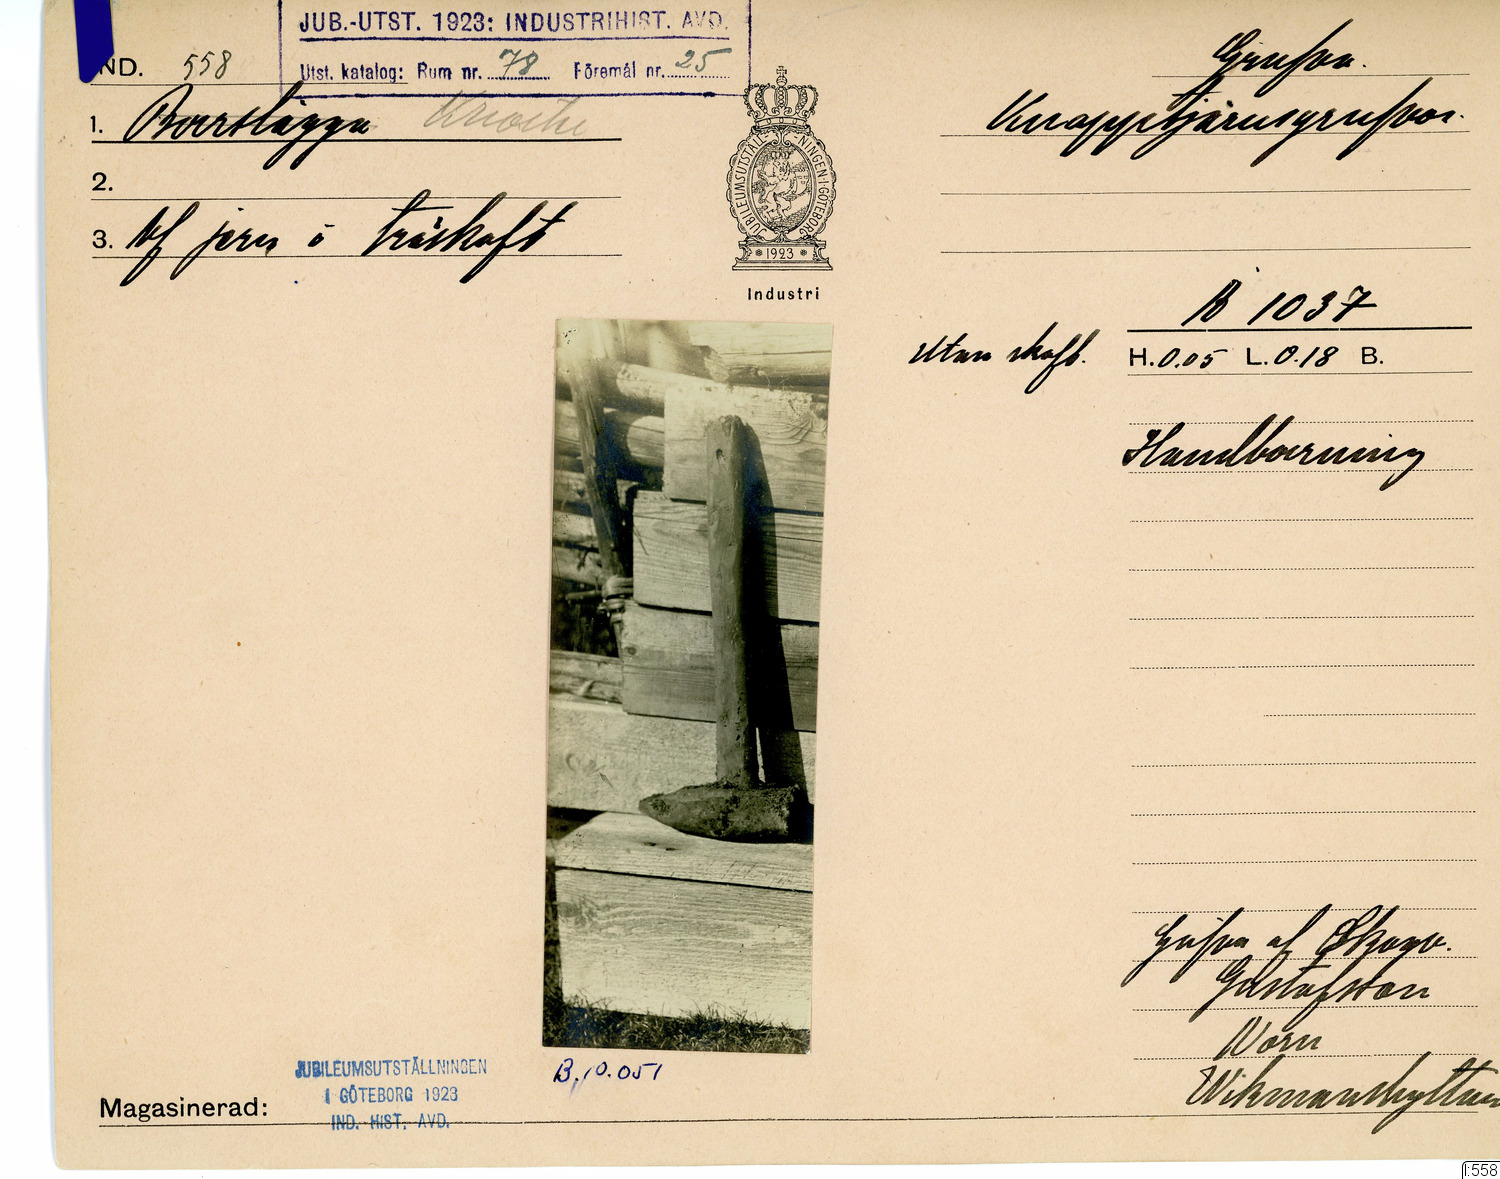 JUB.-UTST. 1923: INDUSTRIHIST. AVD.
Utst. katalog: Rum nr. 78 Föremål nr. 25
IND. 558
1. Borrslägga
2.
3. Af jern o träskaft
JUBILEUMSUTSTÄLLNINGEN I GÖTEBORG
1923
Industri
Grufva.
Knappetjärnsgrufvor.
B 1037
Utan skaft.
H. 0.05 L. 0.18 B.
Handborrning
Grufva af Skogv.
Gustafsson
Norn
Wikmanshyttan
B, 10.051
JUBILEUMSUTSTÄLLNINGEN
I GÖTEBORG 1923
IND. HIST. AVD.
Magasinerad:
I:558